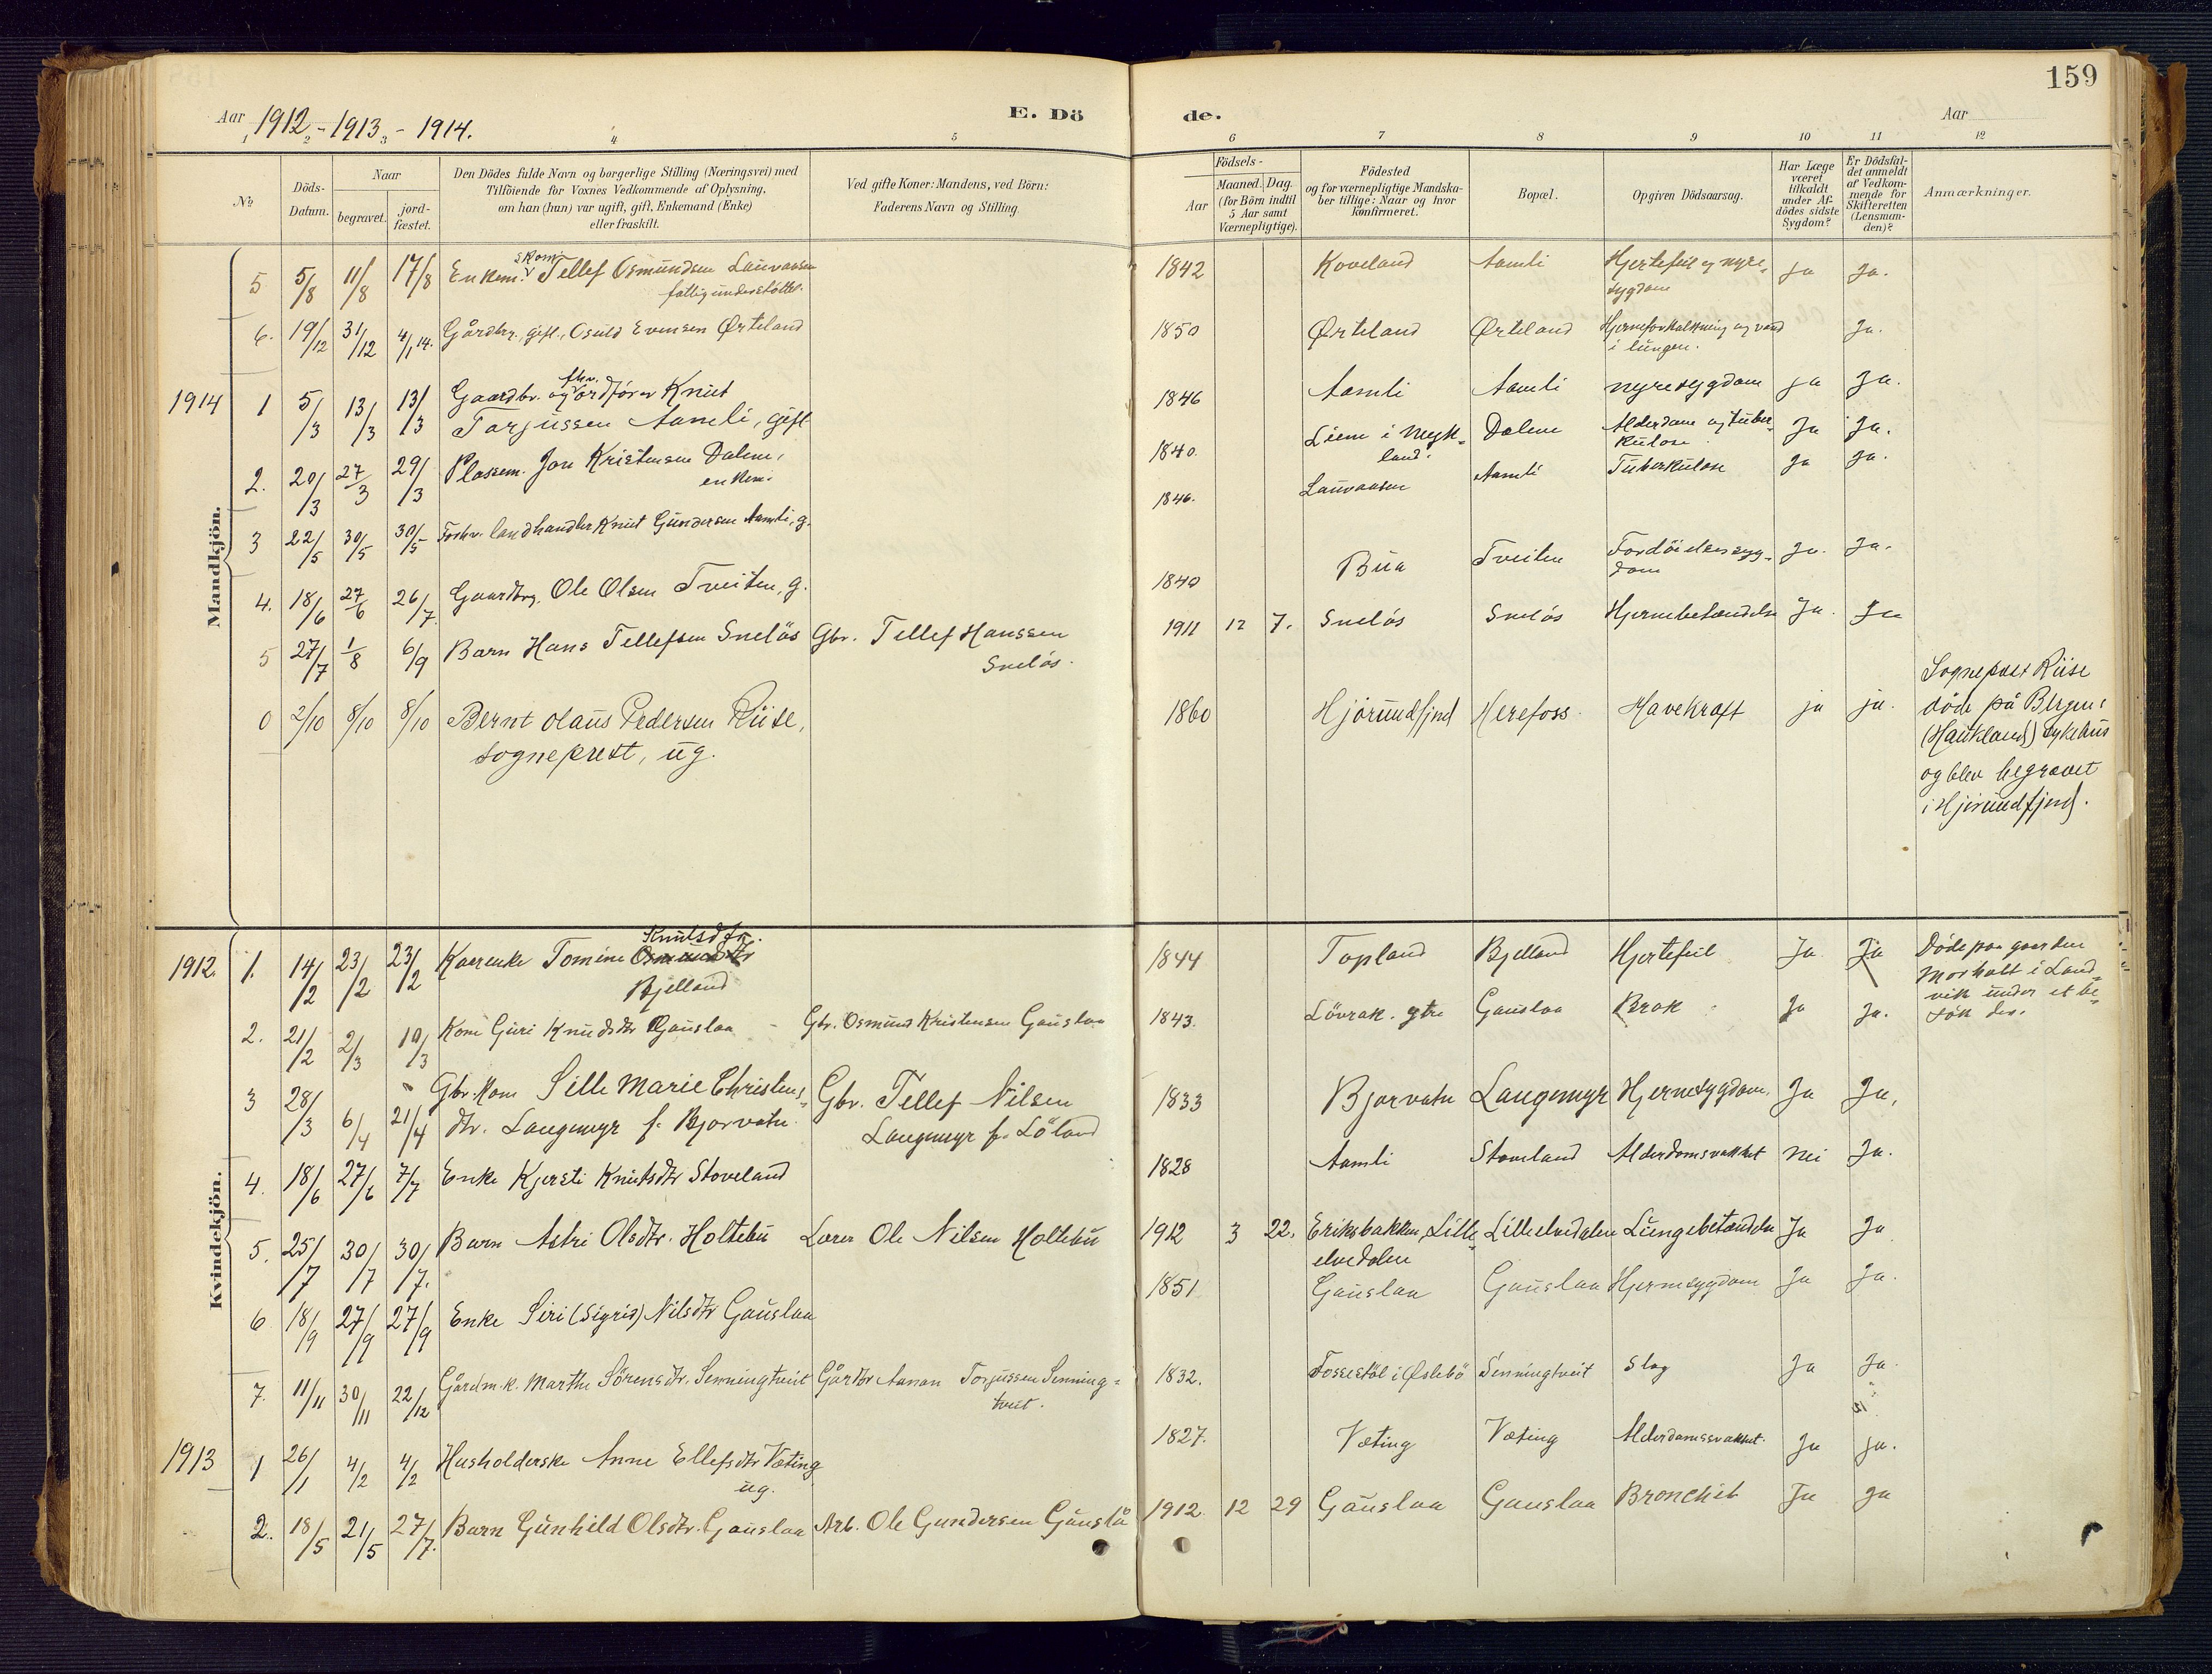 159
Aar 1912 - 1913 - 1914.
E. Dö
de.
Aar
1 2 3 4 5 6 7 8 9 10 11 12
№
Döds-
Datum.
Naar
begravet.
jord-
fæstet.
Den Dödes fulde Navn og borgerlige Stilling (Næringsvei) med
Tilföiende for Voxnes Vedkommende af Oplysning,
om han (hun) var ugift, gift, Enkemand (Enke)
eller fraskilt.
Ved gifte Koner: Mandens, ved Börn:
Faderens Navn og Stilling.
Födsels-
Aar
Maaned. Dag.
(for Börn indtil
5 Aar samt
Værnepligtige).
Födested
og for værnepligtige Mandska-
ber tillige: Naar og hvor
konfirmeret.
Bopæl.
Opgiven Dödsaarsag.
Har Læge
været
tilkaldt
under Af-
dödes sidste
Sygdom?
Er Dödsfal-
det anmeldt
af Vedkom-
mende for
Skifteretten
(Lensman-
den)?
Anmærkninger.
Mandkjön.
5 5/8 11/8 17/8 Enkem. skom. Tellef Osmundsen Lauvaasen 1842 Koveland Aamli Hjertefeil og nyre- ja Ja.
fattigunderstöttet. sygdom
6. 19/12 31/12 4/1 14. Gårdbr., gift, Osuld Evensen Ørteland 1850 Ørteland Ørteland Hjerneforkalkning og vand Ja.
i lungen.
1914 1 5/3 13/3 13/3 Gaardbr. og fhv. ordförer Knut 1846 Aamli Aamli nyresygdom ja Ja.
Tarjussen Aamli, gift
2. 20/3 27/3 29/3 Plassem. Jon Kristensen Dalene, 1840. Liene i Mykland. Dalene Alderdom og tuberkulose Ja Ja.
enkem.
3 22/5 30/5 30/5 Forhv. landhandler Knut Gundersen Aamli, g. 1846. Lauvaasen Aamli Tuberkulose Ja Ja.
4. 18/6 27/6 26/7. Gaardbrg. Ole Olsen Tveiten, g. 1840 Bua Tveiten Fordöielsessyg- Ja. Ja.
dom
5 27/7 1/8 6/9 Barn Hans Tellefsen Snelös Gbr. Tellef Hanssen 1911 12 7. Snelös Snelös Hjernebetændelse Ja. Ja
Snelös.
0 2/10 8/10 8/10 Bernt Olaus Pedersen Riise, 1860 Hjörundfjord Herefoss. Mavekraft ja ja.
sogneprest, ug.
Sogneprest Riise
døde på Bergens
(Haukland) sykehus
og blev begravet
i Hjörundfjord.
Kvindekjön.
1912. 1. 14/2 23/2 23/2 Kaarenke Tomine Osmundsdtr Knutsdtr. 1844 Topland Bjelland Hjertefeil Ja Ja
Bjelland
Döde paa gaarden
Morholt i Land-
vik under et be-
sök der.
2. 21/2 2/3 10/3 Kone Guri Knudsdtr Gauslaa Gbr. Osmund Kristensen Gauslaa 1843. Lövrak. gtre Gauslaa Brok Ja Ja.
3 28/3 6/4 21/4 Gbr. Kone Sille Marie Christens- Gbr. Tellef Nilsen 1833 Bjorvatn Langemyr Hjernesygdom, Ja Ja,
dtr. Langemyr f. Bjorvatn. Langemyr f. Löland
4. 18/6 27/6 7/7 Enke Kjersti Knutsdtr Stoveland 1828 Aamli Stoveland Alderdomsvakhet nei Ja.
5. 25/7 30/7 30/7. Barn Astri Olsdtr. Holtebu Lærer Ole Nilsen Holtebu 1912 3 22. Eriksbakken, Lille- Lilleelvedalen Lungebetændelse Ja Ja
elvedalen
6 18/9 27/9 27/9 Enke Siri (Sigrid) Nilsdtr Gauslaa 1851 Gauslaa Gauslaa Hjernesygdom Ja Ja.
7. 11/11 30/11 22/12 Gårdm.k. Marthe Sörensdtr. Senningtveit Gårdbr Aanon Torjussen Senning- 1832. Fossestöl i Øslebö Senningtveit Slag Ja Ja.
tveit.
1913 1 26/1 4/2 4/2 Husholderske Anne Ellefsdtr Væting 1827. Væting Væting Alderdomssvakhet. Ja ja.
ug.
2. 18/5 21/5 27/7. Barn Gunhild Olsdtr. Gauslaa Arb. Ole Gundersen Gauslå 1912. 12 29 Gauslaa Gauslaa Bronchit Ja Ja